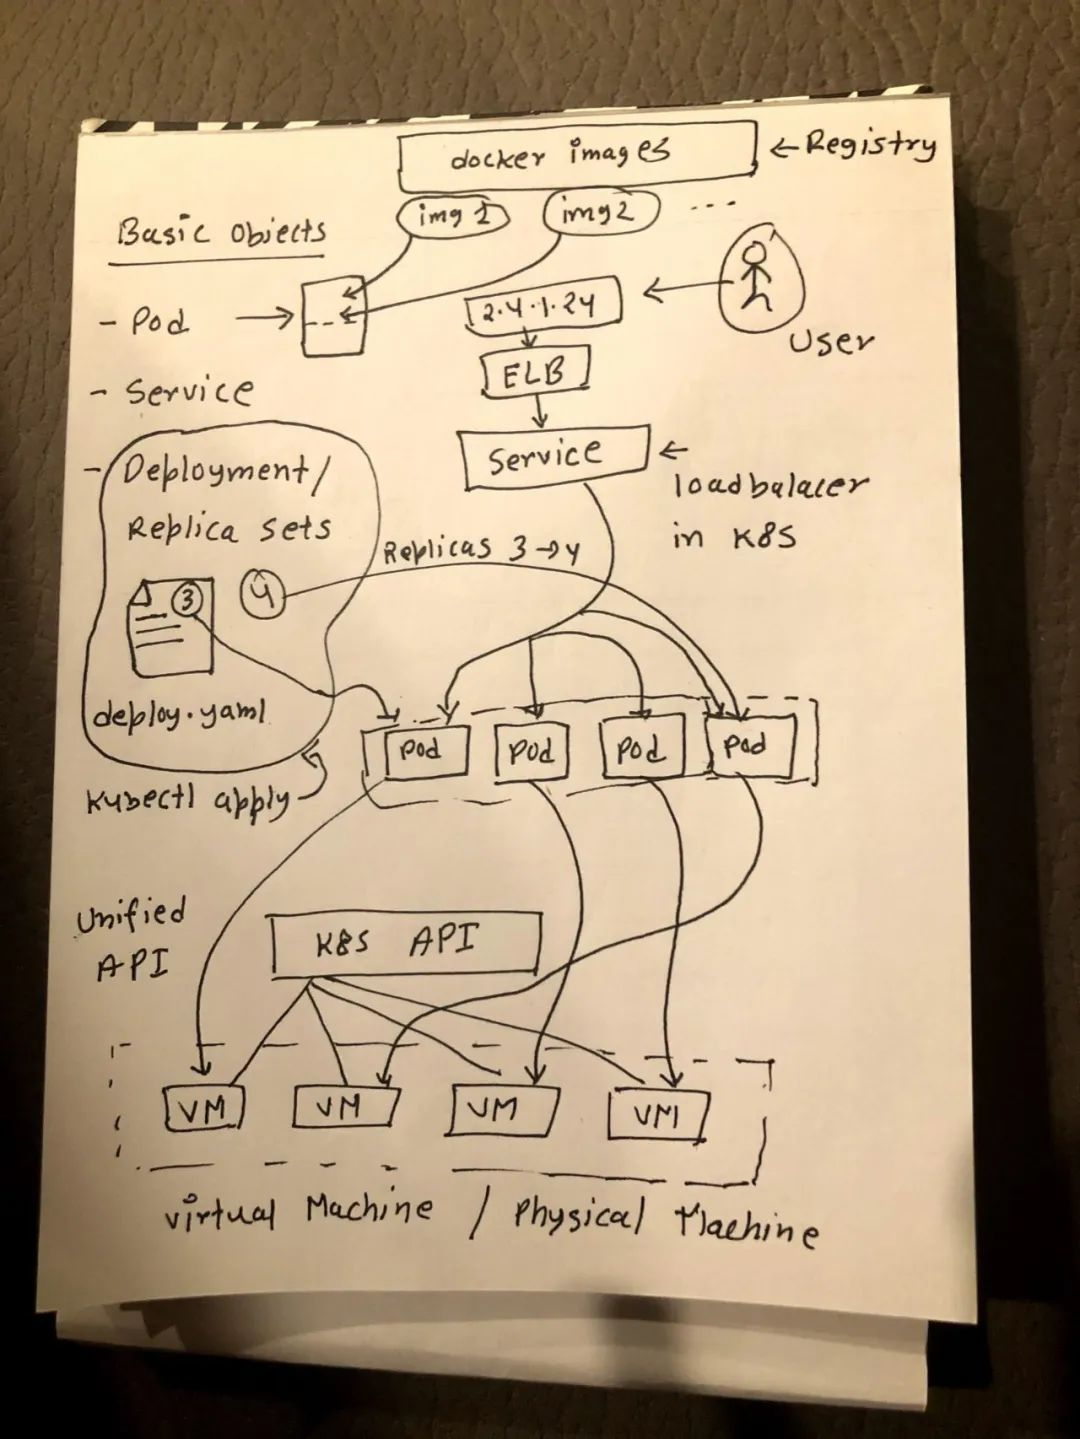 docker images
← Registry
img 1
img2
...
Basic Objects
- Pod
2.4.1.24
User
ELB
- Service
Service
←
loadbalacer
in K8S
- Deployment/
Replica sets
Replicas 3 → 4
3
4
deploy.yaml
Pod
Pod
Pod
Pod
Kubectl apply
Unified
API
K8S API
VM
VM
VM
VM
Virtual Machine / Physical Machine